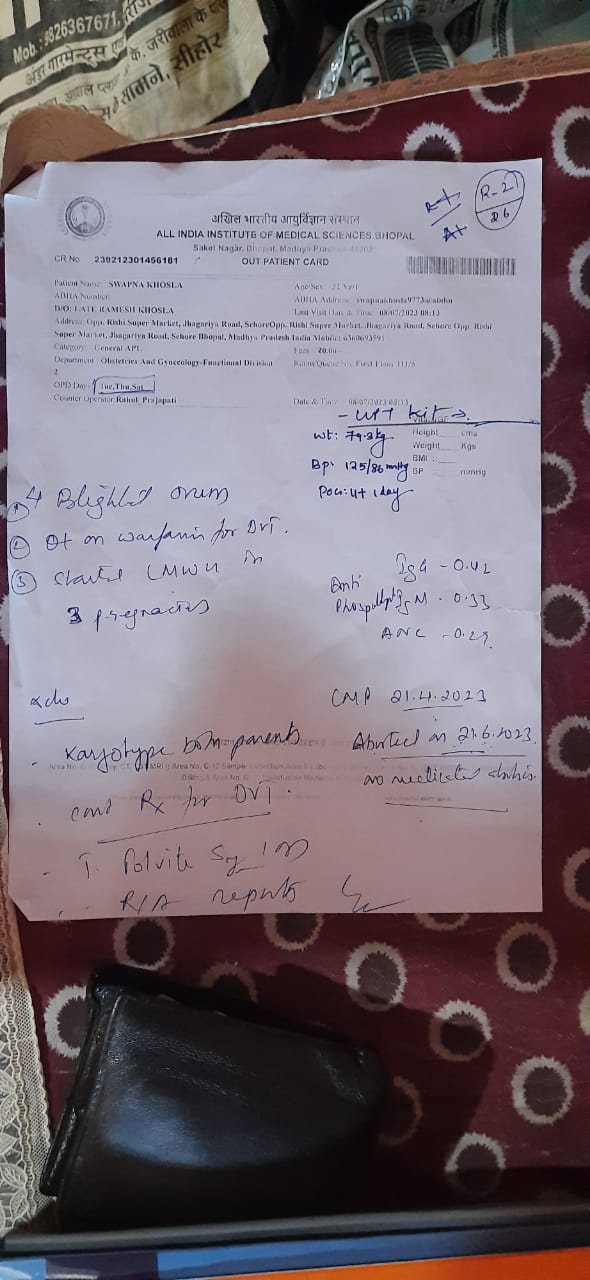 Mob.: 9826367671,
गारमेन्ट्स
के. जरीवाला के
सामने, सीहोर
R-2
26
A+
अखिल भारतीय आयुर्विज्ञान संस्थान
ALL INDIA INSTITUTE OF MEDICAL SCIENCES BHOPAL
Saket Nagar, Bhopal, Madhya Pradesh
CR No 239212301456181 OUT PATIENT CARD
Patient Name: SWAPNA KHOSLA Age/Sex:
ABHA Number: ABHA Address: swapnakhosla9773@abdm
D/O: LATE RAMESH KHOSLA Last Visit Date & Time: 08/07/2023 08:13
Address: Opp. Rishi Super Market, Jhagariya Road, SehoreOpp. Rishi Super Market, Jhagariya Road, Sehore Opp. Rishi
Super Market, Jhagariya Road, Sehore Bhopal, Madhya Pradesh India Mobile: 6360693591
Category: General APL Fees ₹0.00
Department Obstetrics And Gynecology-Functional Division Room/Queue No. First Floor 111/5
2
OPD Day: Tue,Thu,Sat
Counter Operator: Rahul Prajapati Date & Time 08/07/2023 08:13
- UPT Kit
Wt: 79.3kg Height cms
Weight Kgs
BMI :
BP: 125/86 mmHg BP mmHg
POG: 4+1day
① 4 Blighted ovum
② On warfarin for DVT.
③ Started LMWH in
3 pregnancies
Anti IgG - 0.42
IgM - 0.33
- 0.29
LMP 21.4.2023
Adv
- Karyotype both parents Aborted on 21.6.2023
no
. cont Rx for DVT.
- T. Folvite 5mg 1 OD
- R/A reports